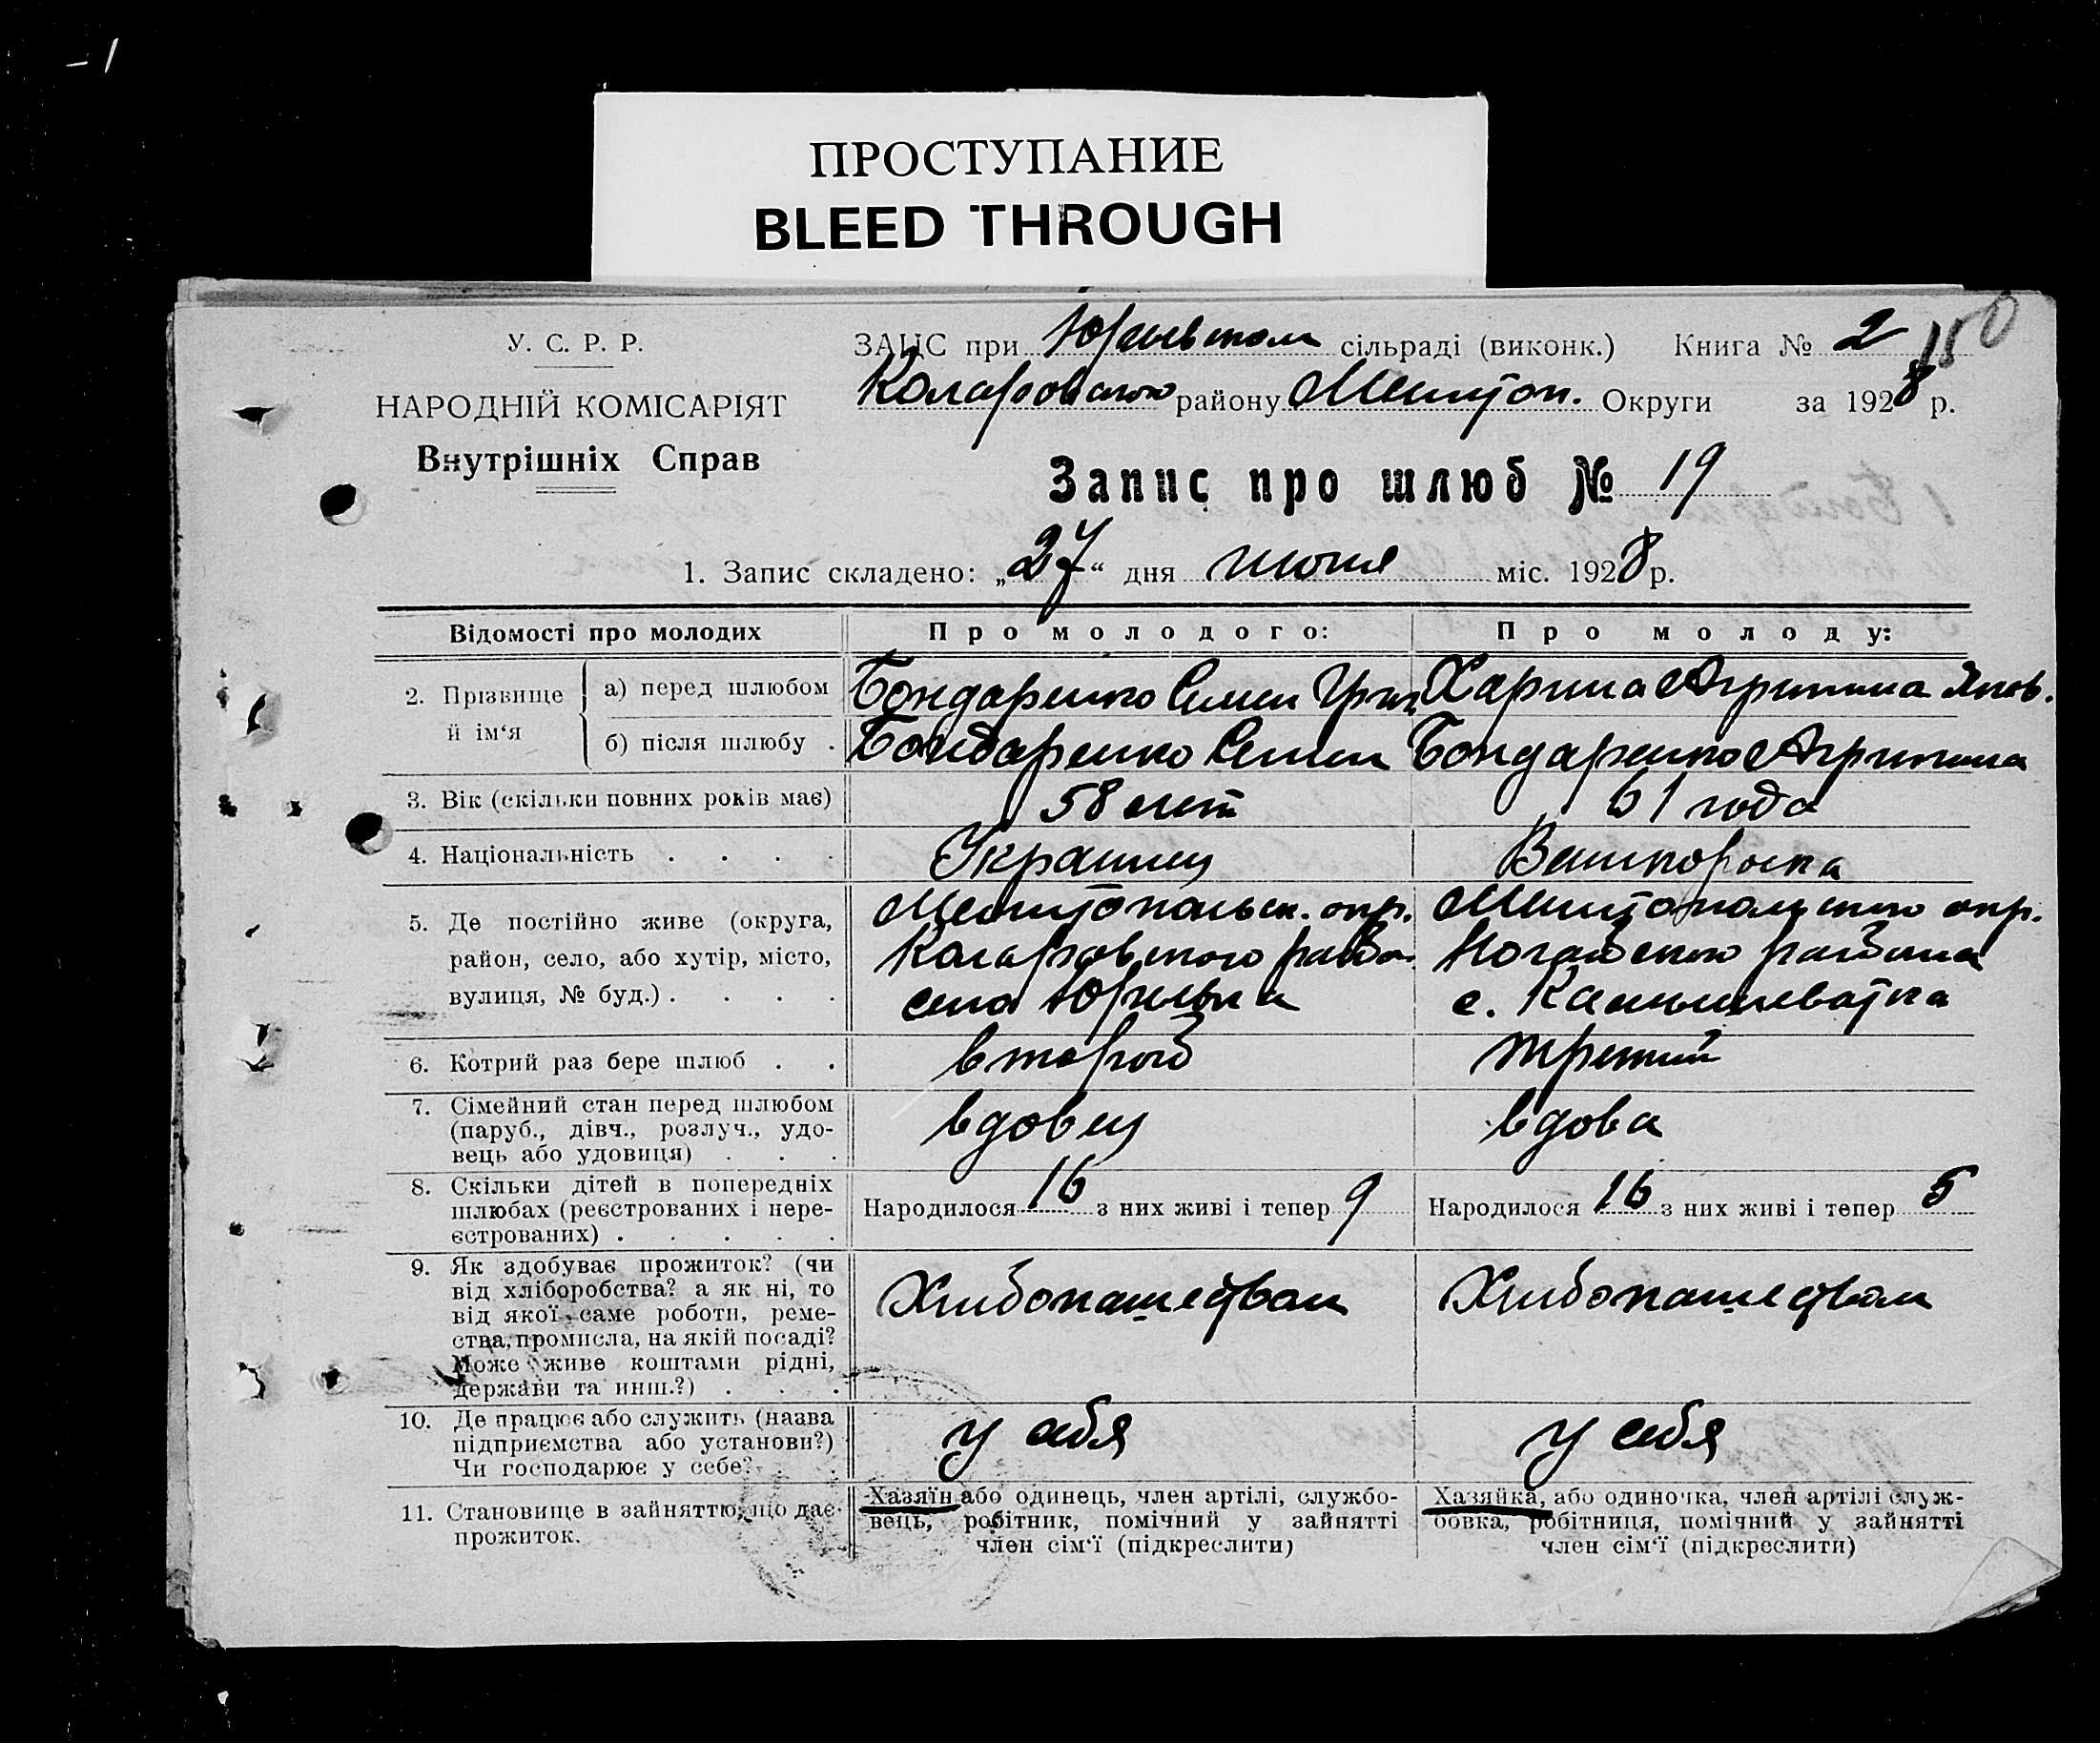 -1
ПРОСТУПАНИЕ
BLEED THROUGH
У. С. Р. Р.
НАРОДНІЙ КОМІСАРІЯТ
Внутрішніх Справ
ЗАЦС при Юрьевском сільраді (виконк.) Книга № 2 150
Коларовского району Мелитоп. Округи за 1928 р.
Запис про шлюб № 19
1. Запис складено: „27“ дня июня міс. 1928 р.
Відомості про молодих
Про молодого:
Про молоду:
2. Прізвище й ім‘я
а) перед шлюбом
Бондаренко Семен Григ.
Харина Агрипина Яков.
б) після шлюбу .
Бондаренко Семен
Бондаренко Агрипина
3. Вік (скільки повних років має)
58 лет
61 года
4. Національність . . . .
Украинец
Великороска
5. Де постійно живе (округа,
район, село, або хутір, місто,
вулиця, № буд.) . . . .
Мелитопольск. окр.
Коларовского район.
села Юрьевка
Мелитопольского окр.
Ногайского района
с. Камышеватка
6. Котрий раз бере шлюб . .
второй
третий
7. Сімейний стан перед шлюбом
(паруб., дівч., розлуч., удо-
вець або удовиця) . . .
вдовец
вдова
8. Скільки дітей в попередніх
шлюбах (реєстрованих і нере-
єстрованих) . . . . .
Народилося 16 з них живі і тепер 9
Народилося 16 з них живі і тепер 5
9. Як здобуває прожиток? (чи
від хліборобства? а як ні, то
від якої саме роботи, реме-
ства, промисла, на якій посаді?
Може живе коштами рідні,
держави та инш.?) . . .
Хлибопашеством
Хлибопашеством
10. Де працює або служить (назва
підприємства або установи?)
Чи господарює у себе? . .
у себя
у себя
11. Становище в зайняттю, що дає
прожиток.
Хазяїн або одинець, член артілі, службо-
вець, робітник, помічний у зайнятті
член сім‘ї (підкреслити)
Хазяйка, або одиночка, член артілі служ-
бовка, робітниця, помічний у зайнятті
член сім‘ї (підкреслити)